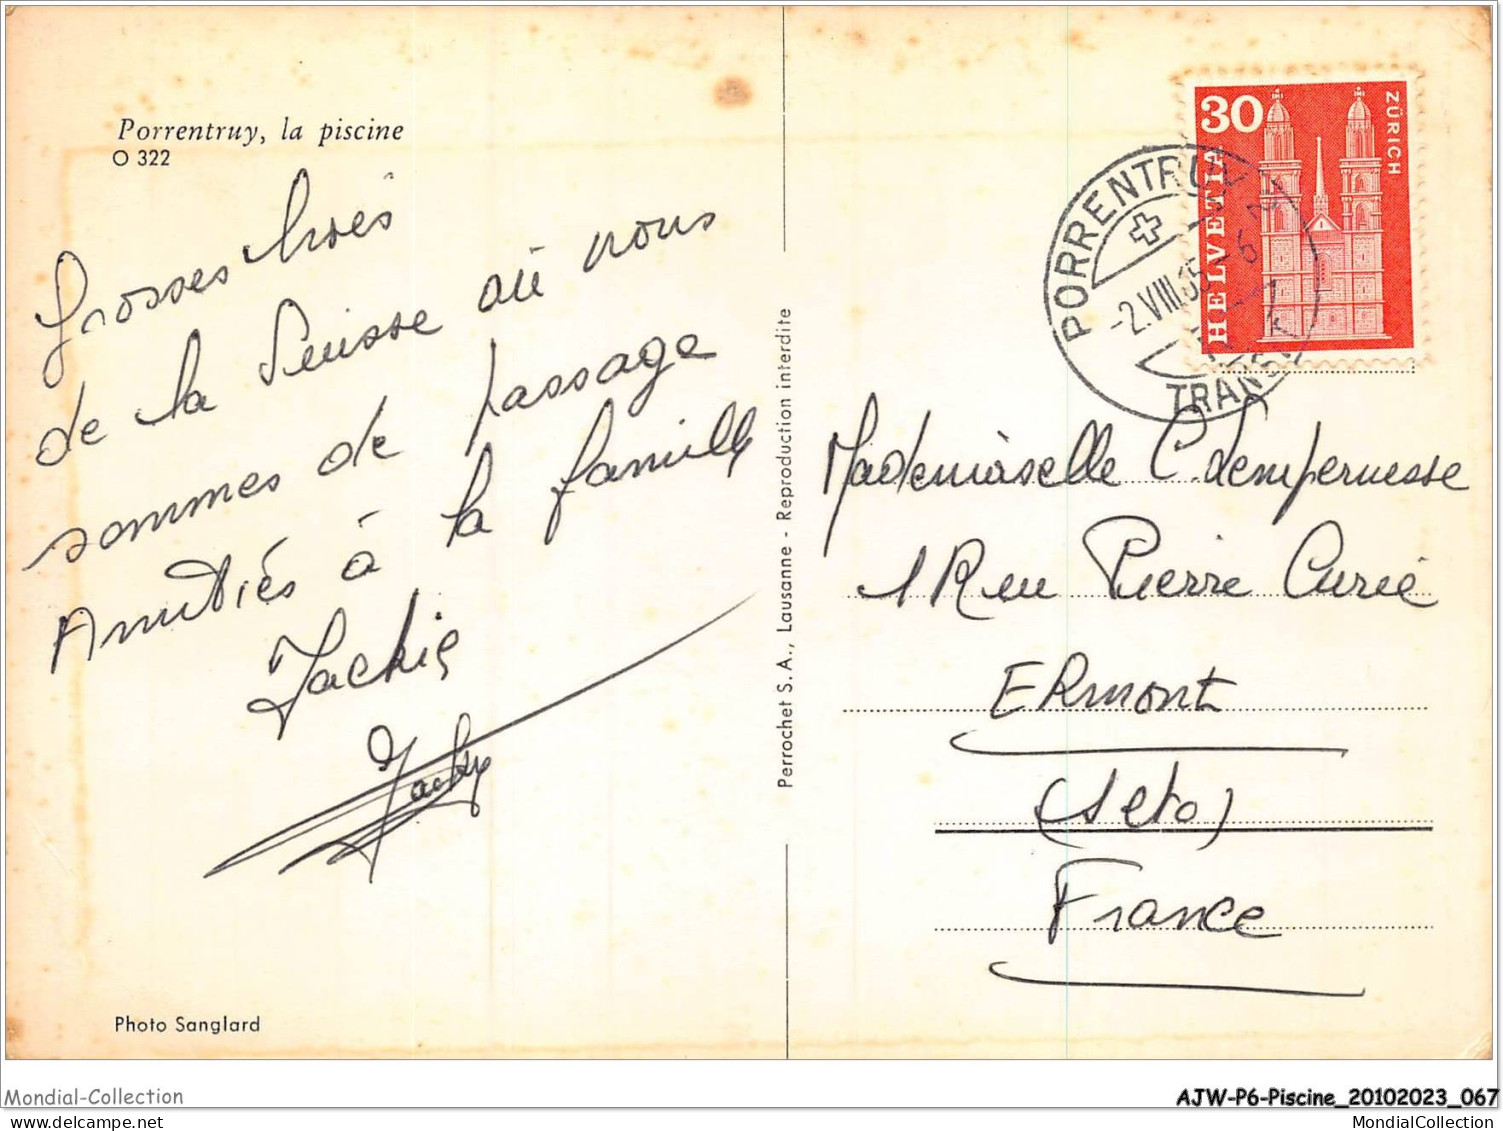 Porrentruy, la piscine
O 322
Grosses bises
de la Suisse où nous
sommes de passage
Amitiés à la famille
Jackie
Jacky
Photo Sanglard
Perrochet S. A., Lausanne - Reproduction interdite
30
ZÜRICH
HELVETIA
PORRENTRUY
-2.VIII.65
TRANSIT
Mademoiselle C.
1 Rue Pierre Curie
ERmont
(Seto)
France
Mondial-Collection
AJW-P6-Piscine_20102023_067
MondialCollection